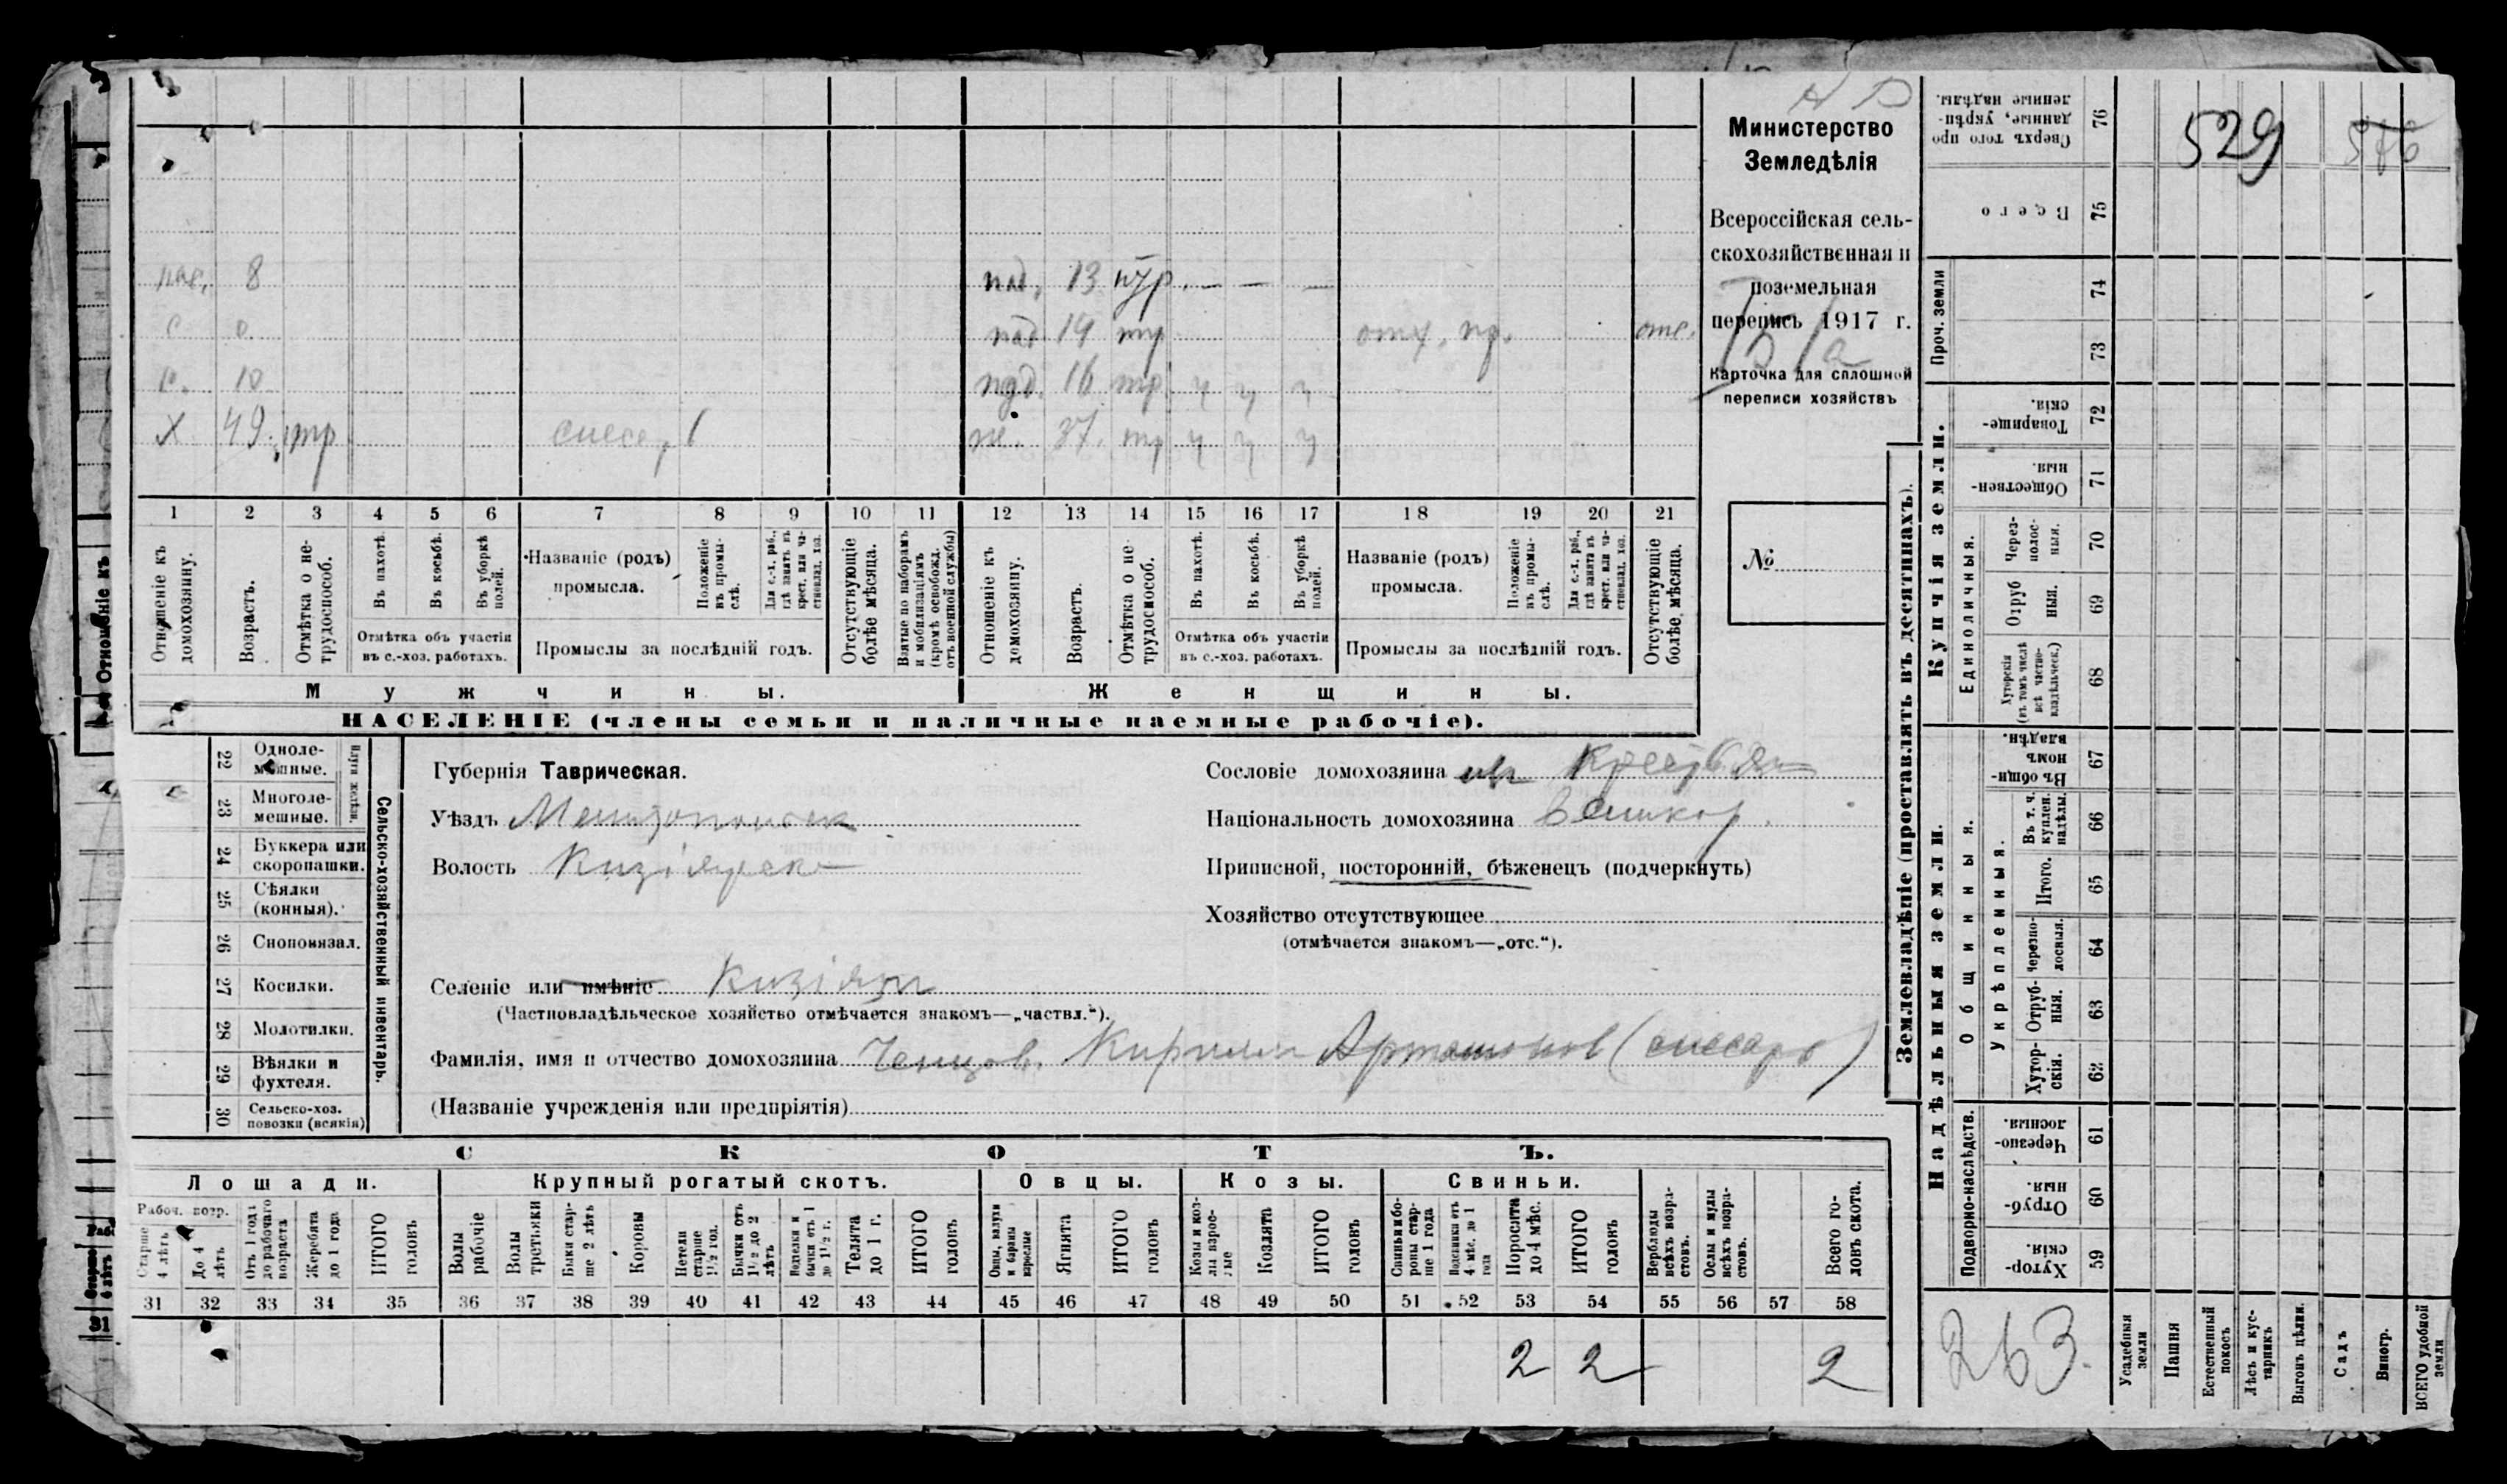 529
Министерство
Земледѣлія
Всероссійская сель-
скохозяйственная и
поземельная
перепись 1917 г.
Карточка для сплошной
переписи хозяйствъ
№
пас. 8 13 тр. — — —
с 0. 19 тр отх. пр. отс.
с. 10 16 тр. ч ч ч
х 49. тр. слесар 1 же. 37. тр ч ч ч
1 2 3 4 5 6 7 8 9 10 11 12 13 14 15 16 17 18 19 20 21
Отношеніе къ домохозяину.
Возрастъ.
Отмѣтка о не-трудоспособ.
Въ пахотѣ.
Въ косьбѣ.
Въ уборкѣ полей.
Отмѣтка объ участіи
въ с.-хоз. работахъ.
Названіе (родъ)
промысла.
Положеніе въ промы-слѣ.
Для с.-х. раб., гдѣ занятъ въ крест. или ча-стновлад. хоз.
Промыслы за послѣдній годъ.
Отсутствующіе болѣе мѣсяца.
Взятые по наборамъ и мобилизаціямъ (кромѣ освобожд. отъ военной службы)
Отношеніе къ домохозяину.
Возрастъ.
Отмѣтка о не-трудоспособ.
Въ пахотѣ.
Въ косьбѣ.
Въ уборкѣ полей.
Отмѣтка объ участіи
въ с.-хоз. работахъ.
Названіе (родъ)
промысла.
Положеніе въ промы-слѣ.
Для с.-х. раб., гдѣ занята въ крест. или ча-стновлад. хоз.
Промыслы за послѣдній годъ.
Отсутствующіе болѣе мѣсяца.
Мужчины. Женщины.
НАСЕЛЕНІЕ (члены семьи и наличные наемные рабочіе).
Сельско-хозяйственный инвентарь.
Плуги желѣзн.
22 Одноле-
мешные.
23 Многоле-
мешные.
24 Буккера или
скоропашки.
25 Сѣялки
(конныя).
26 Сноповязал.
27 Косилки.
28 Молотилки.
29 Вѣялки и
фухтеля.
30 Сельско-хоз.
повозки (всякія)
Губернія Таврическая.
Уѣздъ Мелитопольск
Волость Кизіярск
Селеніе или имѣніе Кизіяри
(Частновладѣльческое хозяйство отмѣчается знакомъ—„частвл.“).
Фамилія, имя и отчество домохозяина Ченцов. Кирилл Артамонов (слесарь)
(Названіе учрежденія или предпріятія)
Сословіе домохозяина из крестьян
Національность домохозяина великор.
Приписной, посторонній, бѣженецъ (подчеркнуть)
Хозяйство отсутствующее
(отмѣчается знакомъ—„отс.“).
СКОТЪ.
Лошади. Крупный рогатый скотъ. Овцы. Козы. Свиньи.
Рабоч. возр.
Старше 4 лѣтъ
До 4 лѣтъ
Отъ 1 года до рабочаго возраста
Жеребята до 1 года
ИТОГО головъ
Волы рабочіе
Волы третьяки
Быки стар-ше 2 лѣтъ
Коровы
Нетели старше 1½ год.
Бычки отъ 1½ до 2 лѣтъ
Телята до 1 г.
ИТОГО головъ
Овцы, валухи и бараны взрослые
Ягнята
ИТОГО головъ
Козы и коз-лы взрос-лые
Козлята
ИТОГО головъ
Свиньи и бо-ровы стар-ше 1 года
Подсвинки отъ 4 мѣс. до 1 года
Поросята до 4 мѣс.
ИТОГО головъ
Верблюды всѣхъ возра-стовъ.
Ослы и мулы всѣхъ возра-стовъ.
Всего го-ловъ скота.
31 32 33 34 35 36 37 38 39 40 41 42 43 44 45 46 47 48 49 50 51 52 53 54 55 56 57 58
2 2 2
Землевладѣніе (проставлять въ десятинахъ).
Надѣльныя земли. Купчія земли. Проч. земли
Подворно-наслѣдств. Общинныя. Укрѣпленныя. Единоличныя.
76 Сверхъ того про-данные, укрѣп-ленные надѣлы.
75 Всего
74
73
72 Товарище-скія.
71 Обществен-ныя.
70 Через-полос-ныя.
69 Отруб-ныя.
68 Хуторскія (въ томъ числѣ всѣ частно-владѣльческ.)
67 Въ общи-номъ владѣн.
66 Въ т. ч. куплен. надѣлы.
65 Итого.
64 Черезпо-лосныя.
63 Отруб-ныя.
62 Хутор-скія.
61 Черезпо-лосныя.
60 Отруб-ныя.
59 Хутор-скія.
263.
Усадебныя земли
Пашня
Естественный покосъ
Лѣсъ и кус-тарникъ
Выгонъ цѣлин.
Садъ
Виногр.
ВСЕГО удобной земли